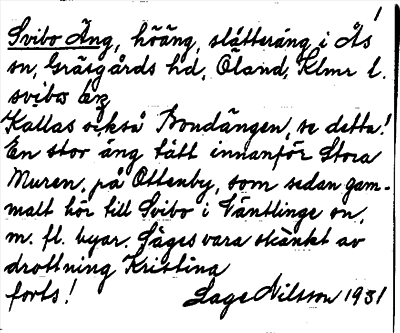 1
Svibo Äng, höäng, slåtteräng i Ås
sn, Gräsgårds hd, Öland, Klmr l.
svibω äŋ
Kallas också Bondängen, se detta!
En stor äng tätt innanför Stora
Muren, på Ottenby, som sedan gam-
malt hör till Svibo i Ventlinge sn,
m. fl. byar. Säges vara skänkt av
drottning Kristina
forts! Sage Nilsson 1931